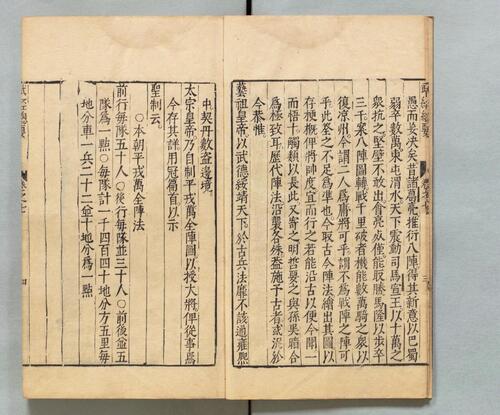 愚而妄決矣昔諸葛亮推衍八陣得其新意以巴蜀
弱卒數萬東屯渭水天下震動司馬宣王以十萬之
衆抗之堅壁不敢出會亮死僅能
勝馬隆以步卒
三千案八陣圖轉戰千里破者機能數萬騎之衆以
復凉州今謂二人爲庸將可乎謂不爲戰陣之陣可
乎此筌之不足爲準也今取古今陣法繪出其圖以
存梗槪俾將帥度宜而行之若能沿古以便今開一
而悟十觸類以長此又寄之明哲要之與孫吳暗合
爲極致耳歷代陣法沿襲各殊
施于古者或泥於
今恭惟
藝祖皇帝以武德綏靖天下於古兵法靡不該通雍熙
中契丹數盜邊境
太宗皇帝乃自制平戎萬全陣圖以授大將俾從事焉
今存其詳用冠篇首以示
聖制云
○本朝平戎萬全陣法
前行每隊五十人○後行每隊並三十人○前後並五
隊爲一點○每隊計一千四百四十地分方五里每
地分車一兵二十二並十地分爲一點
武經總要
卷之七
四